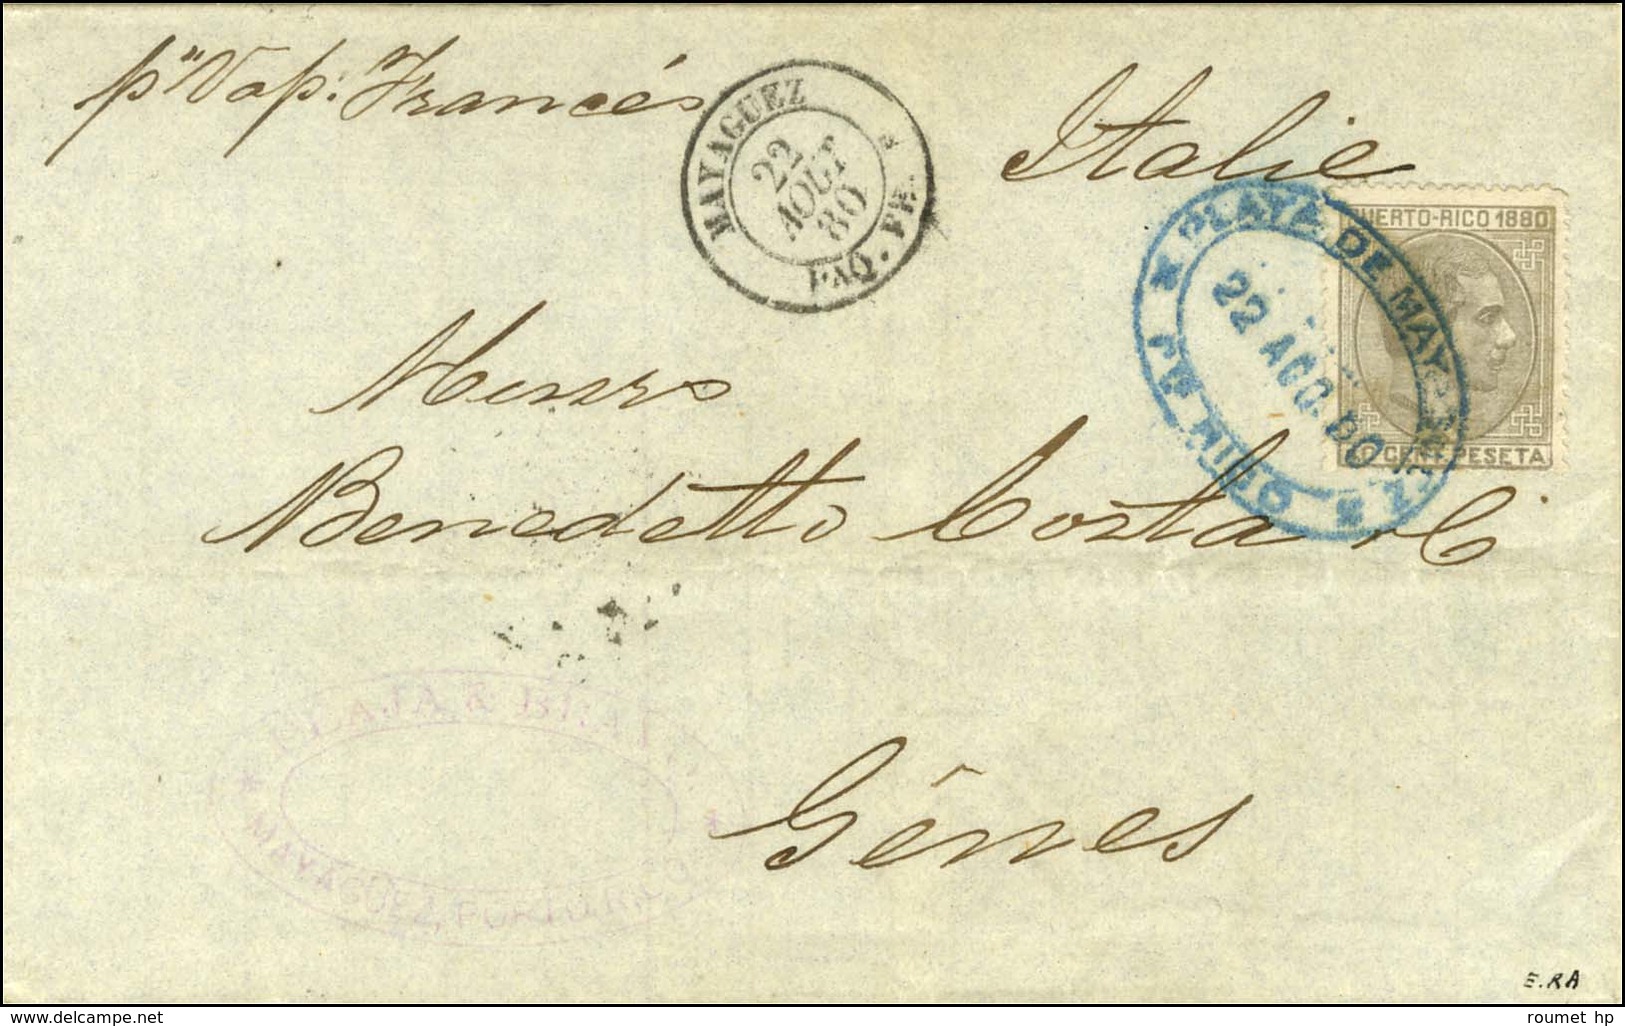 pr Vap: Francés
MAYAGUEZ
22
AOUT
80
PAQ. FR.
Italie
PUERTO-RICO 1880
CENT PESETA
PLAYA DE MAYAGUEZ
22 AGO. 80
Messrs
Benedetto Costa & Ci
MAYAGUEZ, PORTO RICO
Gênes
E.RA
www.delcampe.net
roumet hp